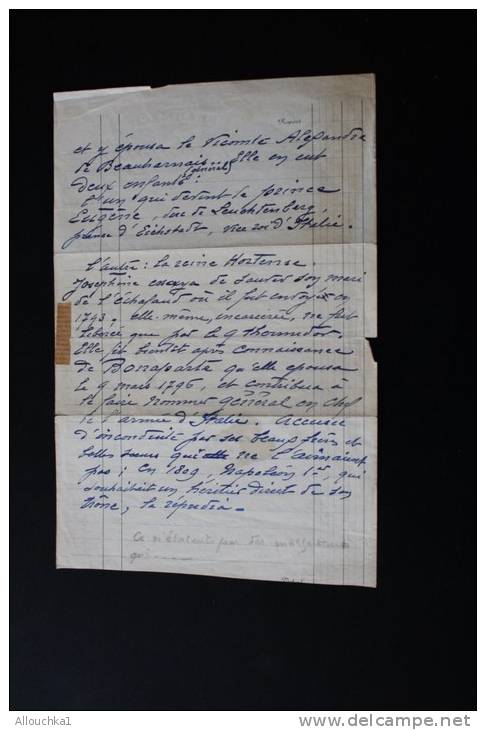 et y épousa le Vicomte Alexandre
de Beauharnais (général). Elle en eut
deux enfants :
l'un qui devint le prince
Eugène, duc de Leuchtenberg,
prince d'Eichstedt, vice roi d'Italie.
l'autre : la reine Hortense.
Joséphine essaya de sauver son mari
de l'échafaud où il fut envoyé en
1793. elle-même, incarcérée, ne fut
libérée que par le 9 thermidor.
Elle fit bientôt après connaissance
de Bonaparte qu'elle épousa
le 9 mars 1796, et contribua à
le faire nommer général en chef
de l'armée d'Italie. Accusée
d'inconduite par ses beaux frères et
belles sœurs qui ne l'aimaient
pas ; en 1809, Napoléon 1er, qui
souhaitait un héritier direct de son
trône, la répudia.
Ce n'étaient pas des
que
Allouchka1
www.delcampe.net